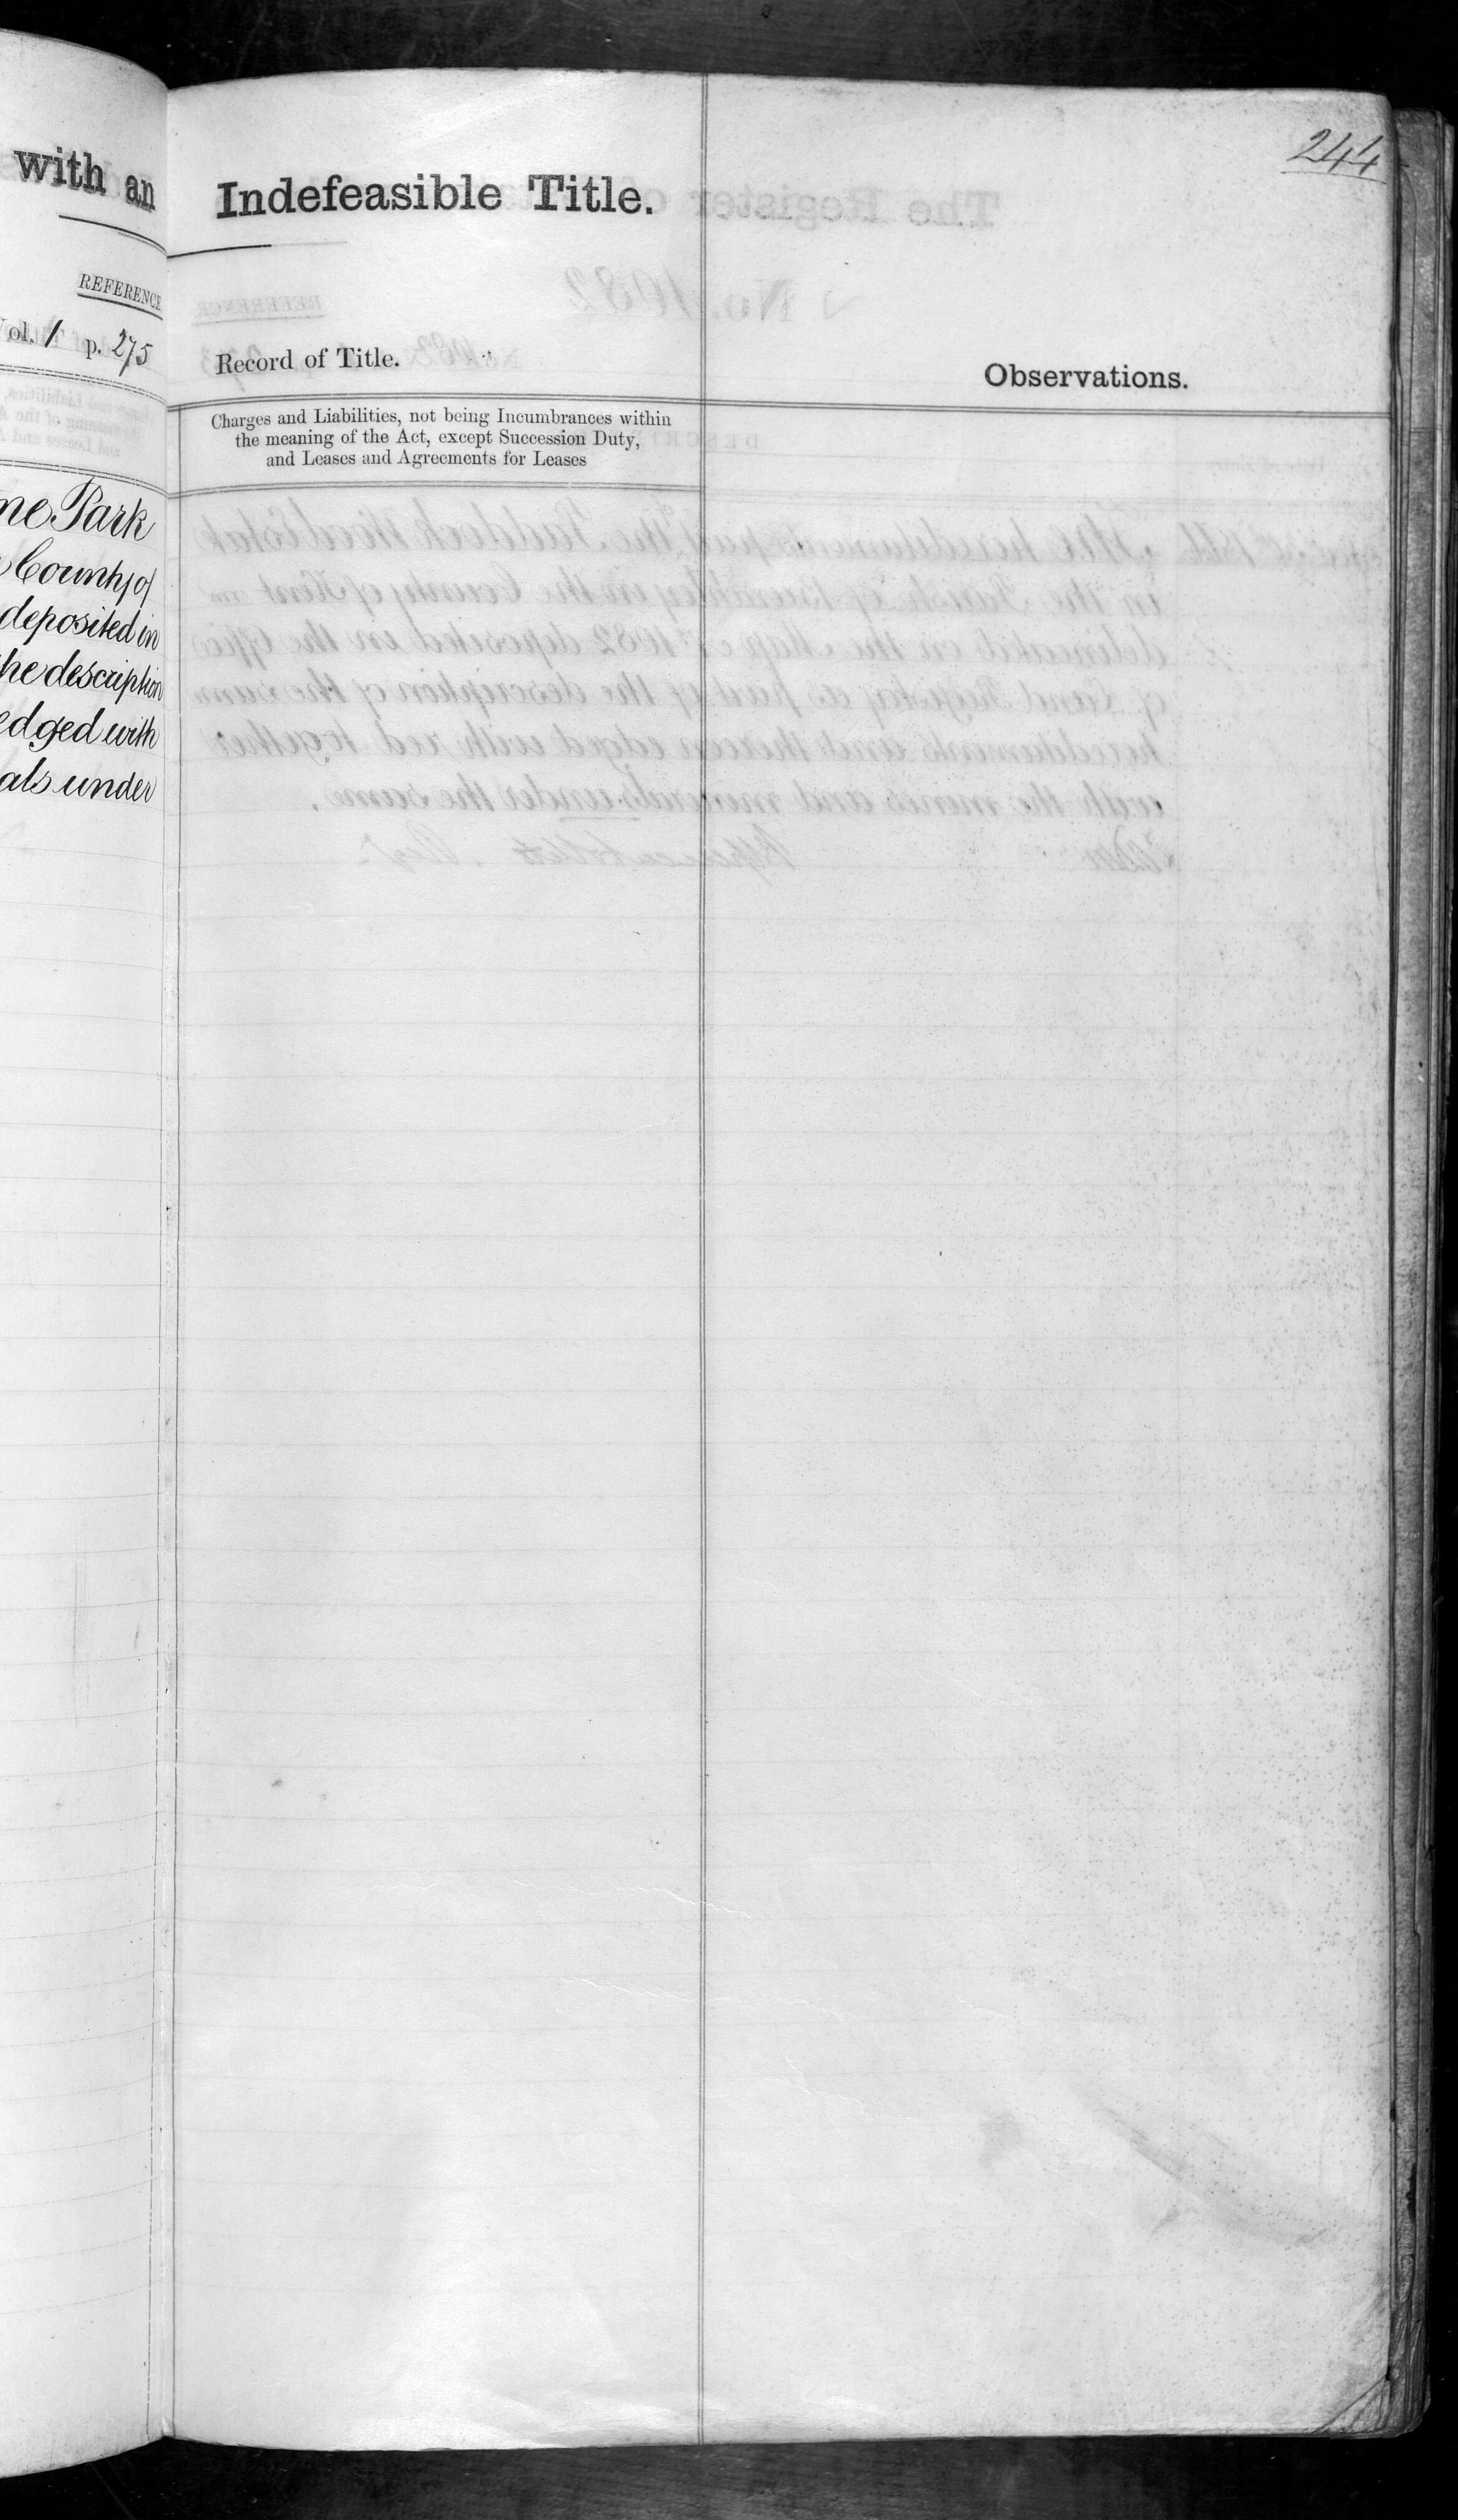 with an
REFERENCE
Vol. 1 p. 275
ne Park
County of
deposited in
the description
edged with
als under
244
Indefeasible Title.
Record of Title.
Observations.
Charges and Liabilities, not being Incumbrances within
the meaning of the Act, except Succession Duty,
and Leases and Agreements for Leases